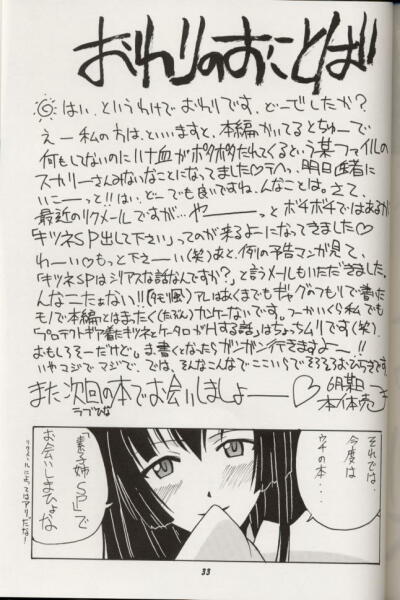 おわりのおことば!!
はい、というわけでおわりです、どーでしたか?
えー私の方は、といいますと、本編かいてるとちゅーで
何もしてないのに鼻血がポタポタたれてくるという某ファイルの
スカリーさんみないなことになってました♡ラヘっ、明日医者に
いこーっと!!はい、どーでも良いですね、んなことは。さて、
最近のリクメールですが…やーーっとボチボチではあるが
「キツネSP出して下さい」ってのが来るよーになってきました♡
わーい♡もっと下さーい(笑)あと、例の予告マンガ見て、
「キツネSPはシリアスな話なんですか?」と言うメールもいただきました。
んなこたぁない!!(タモリ風)アレはあくまでもギャグのつもりで書いた
モノで本編とはまったく(たぶん)カンケーないです。つーかいくら私でも
「プロテクトギア着たキツネとケータロがHする話」はちょっとムリです(笑)
おもしろそーだけど。ま、書くとなったらガンガン行きますよー!!
いやマジでマジで。では、そんなこんなでここいらでそろそろおひらきです。
また次回の本でお会いしましょーー♡
ラブひな
6月某日
本体売
それでは、
今度は
ウチの本・・・
「素子姉SP」で
お会いしましょうな
リクメールによってはアリだな!
33